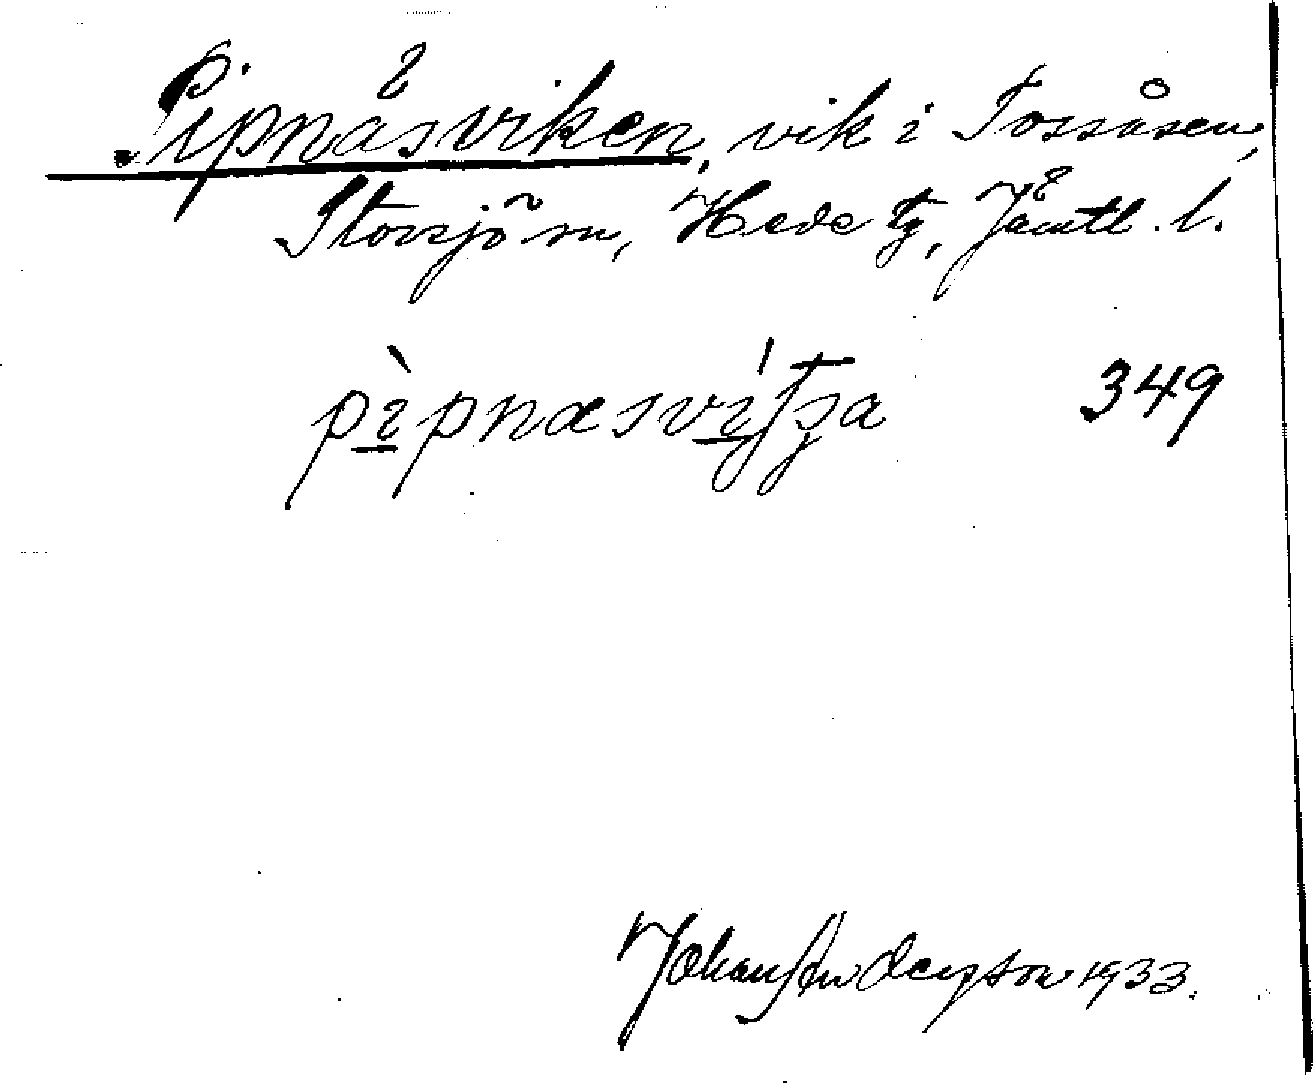 Pipnäsviken, vik i Tossåsen,
Storsjö sn, Hede tg, Jämtl. l.
pìpnæsvítʃa 349
Johan Anderzon 1933.